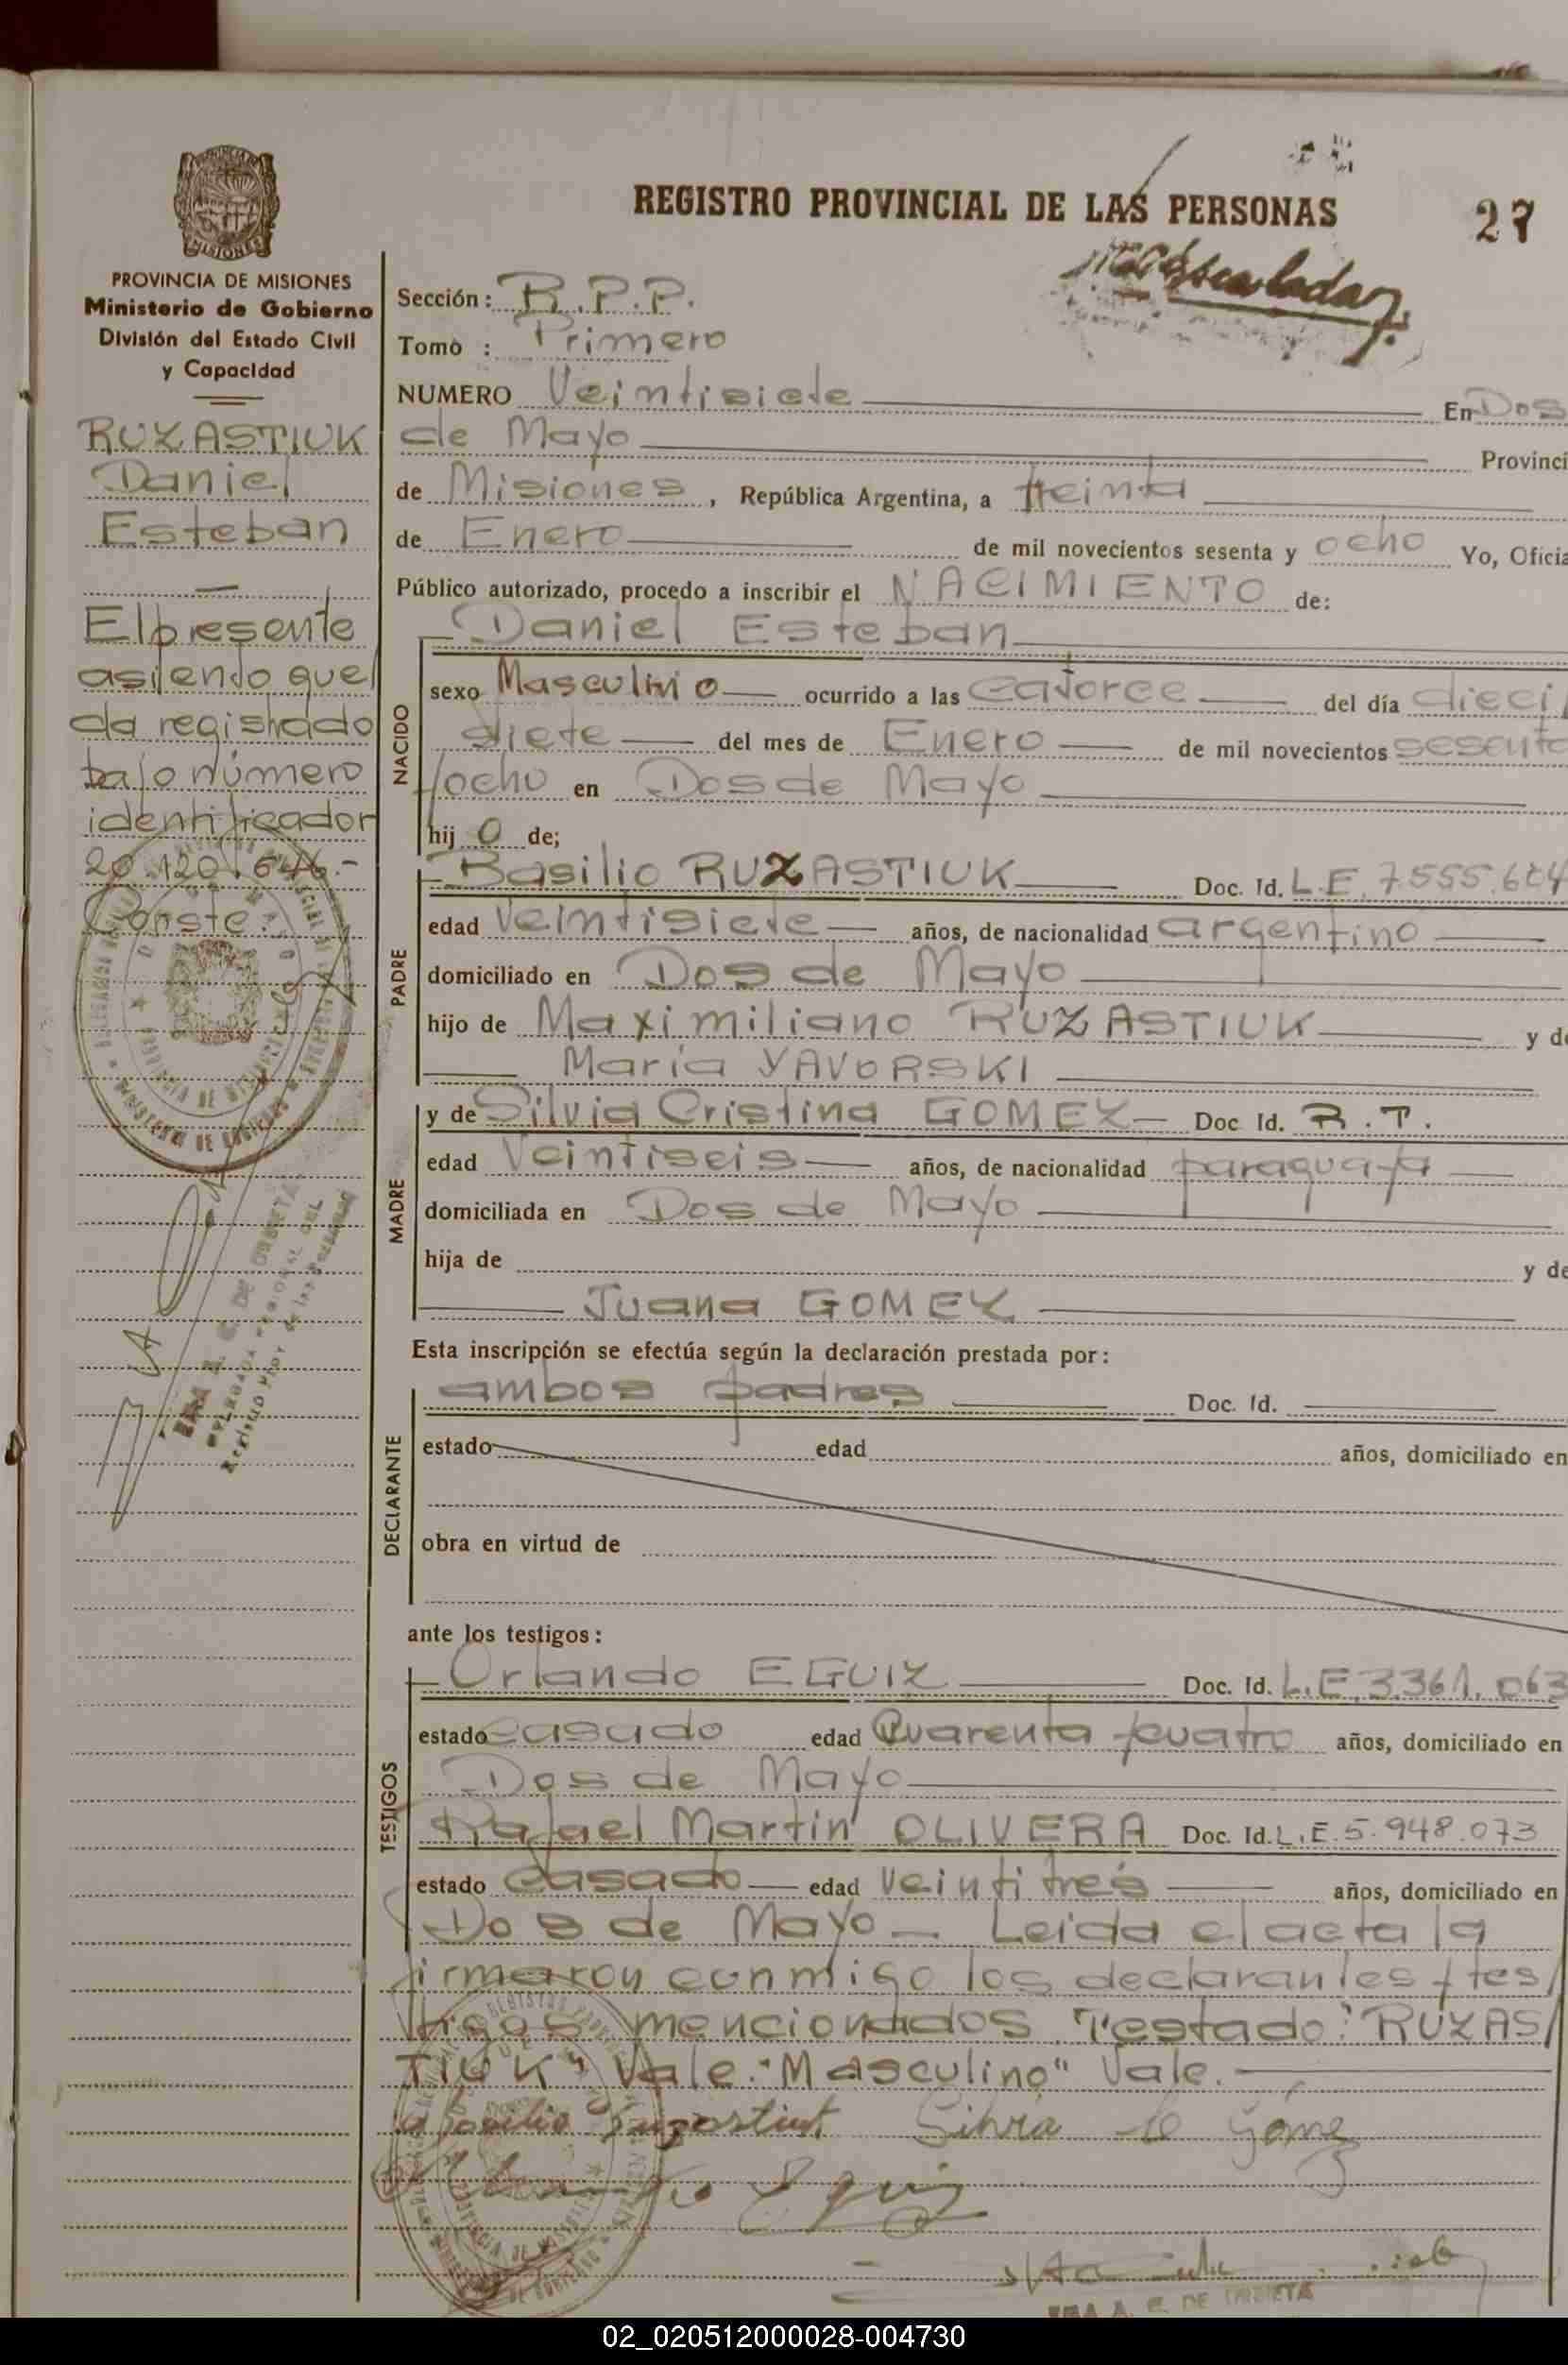 REGISTRO PROVINCIAL DE LAS PERSONAS
27
Escalada
MISIONES
PROVINCIA DE MISIONES
Ministerio de Gobierno
División del Estado Civil
y Capacidad
RUZASTIUK
Daniel
Esteban
El presente
asiento que
da registrado
bajo número
identificador
20.120.646.-
Conste.
Sección: R.P.P.
Tomo : Primero
NUMERO Veintisiete En Dos
de Mayo Provinci
de Misiones, República Argentina, a treinta
de Enero de mil novecientos sesenta y ocho Yo, Oficia
Público autorizado, procedo a inscribir el NACIMIENTO de:
NACIDO
Daniel Esteban
sexo Masculino ocurrido a las catorce del día dieci
siete del mes de Enero de mil novecientos sesenta
/ocho en Dos de Mayo
hij o de;
PADRE
Basilio RUZASTIUK Doc. Id. L.E. 7555.604
edad veintisiete años, de nacionalidad argentino
domiciliado en Dos de Mayo
hijo de Maximiliano RUZASTIUK y de
María YAVORSKI
MADRE
y de Silvia Cristina GOMEZ Doc Id. R.T.
edad Veintiseis años, de nacionalidad paraguaya
domiciliada en Dos de Mayo
hija de y de
Juana GOMEZ
Esta inscripción se efectúa según la declaración prestada por:
DECLARANTE
ambos padres Doc. Id.
estado edad años, domiciliado en
obra en virtud de
ante los testigos:
TESTIGOS
Orlando EGUIZ Doc. Id. L.E. 3.361.063
estado casado edad Cuarenta y cuatro años, domiciliado en
Dos de Mayo
Rafael Martin OLIVERA Doc. Id. L.E. 5.948.073
estado casado edad veintitrés años, domiciliado en
Dos de Mayo - Leida el acta la
firmaron conmigo los declarantes y tes/
tigos mencionados. Testado: "RUZAS/
TIUK" Vale. "Masculino" Vale.
Silvia C Gómez
A. C. DE URBIETA
02_020512000028-004730